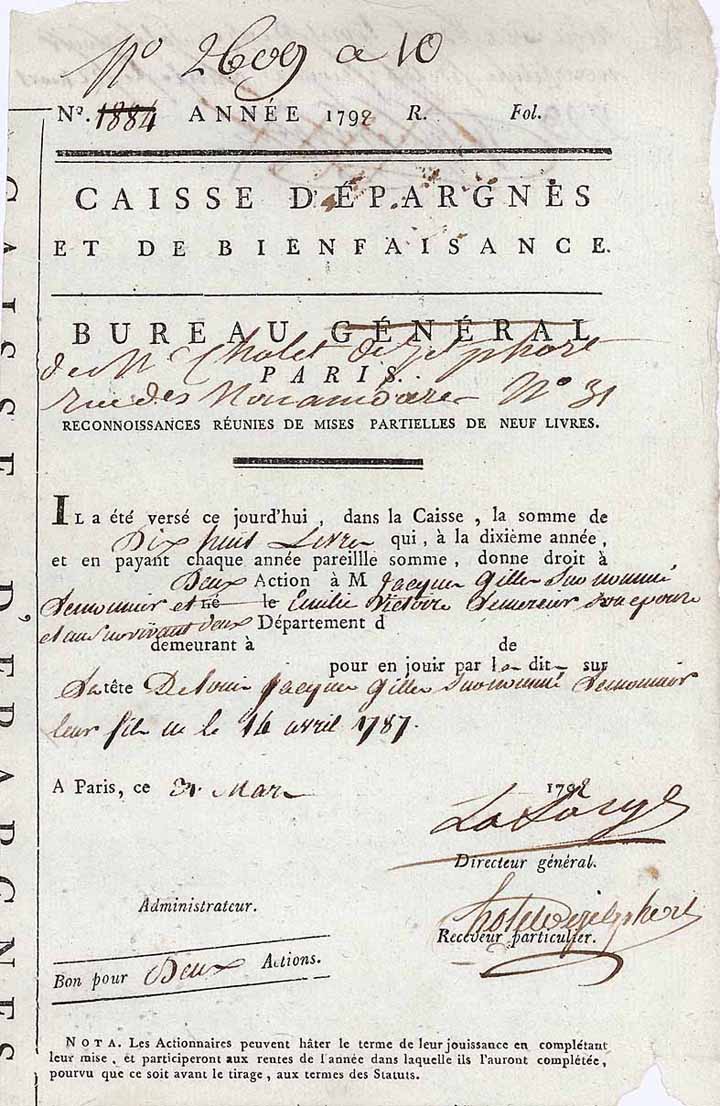 No 2609 a 10
No. 1884 ANNÉE 1792 R. Fol.
CAISSE D'ÉPARGNES
ET DE BIENFAISANCE.
BUREAU GÉNÉRAL
de Mr Cholet de Jetphort
PARIS.
rue des No 31
RECONNOISSANCES RÉUNIES DE MISES PARTIELLES DE NEUF LIVRES.
IL a été versé ce jourd'hui, dans la Caisse, la somme de
Dix huit Livres qui, à la dixième année,
et en payant chaque année pareillle somme, donne droit à
Deux Action à M Jacques Gilles Surnommé
Lemonnier et né le Emilie Victoire son epouse
et au Survivant deux Département d
demeurant à de
pour en jouir par le dit sur
la tête De Louis Jacques Gilles Surnommé Lemonnier
leur fils né le 14 avril 1787.
A Paris, ce 31 Mars 1792
Directeur général.
Administrateur.
Cholet de Jetphort
Receveur particulier.
Bon pour Deux Actions.
NOTA. Les Actionnaires peuvent hâter le terme de leur jouissance en complétant
leur mise, et participeront aux rentes de l'année dans laquelle ils l'auront complétée,
pourvu que ce soit avant le tirage, aux termes des Statuts.
CAISSE D'EPARGNES